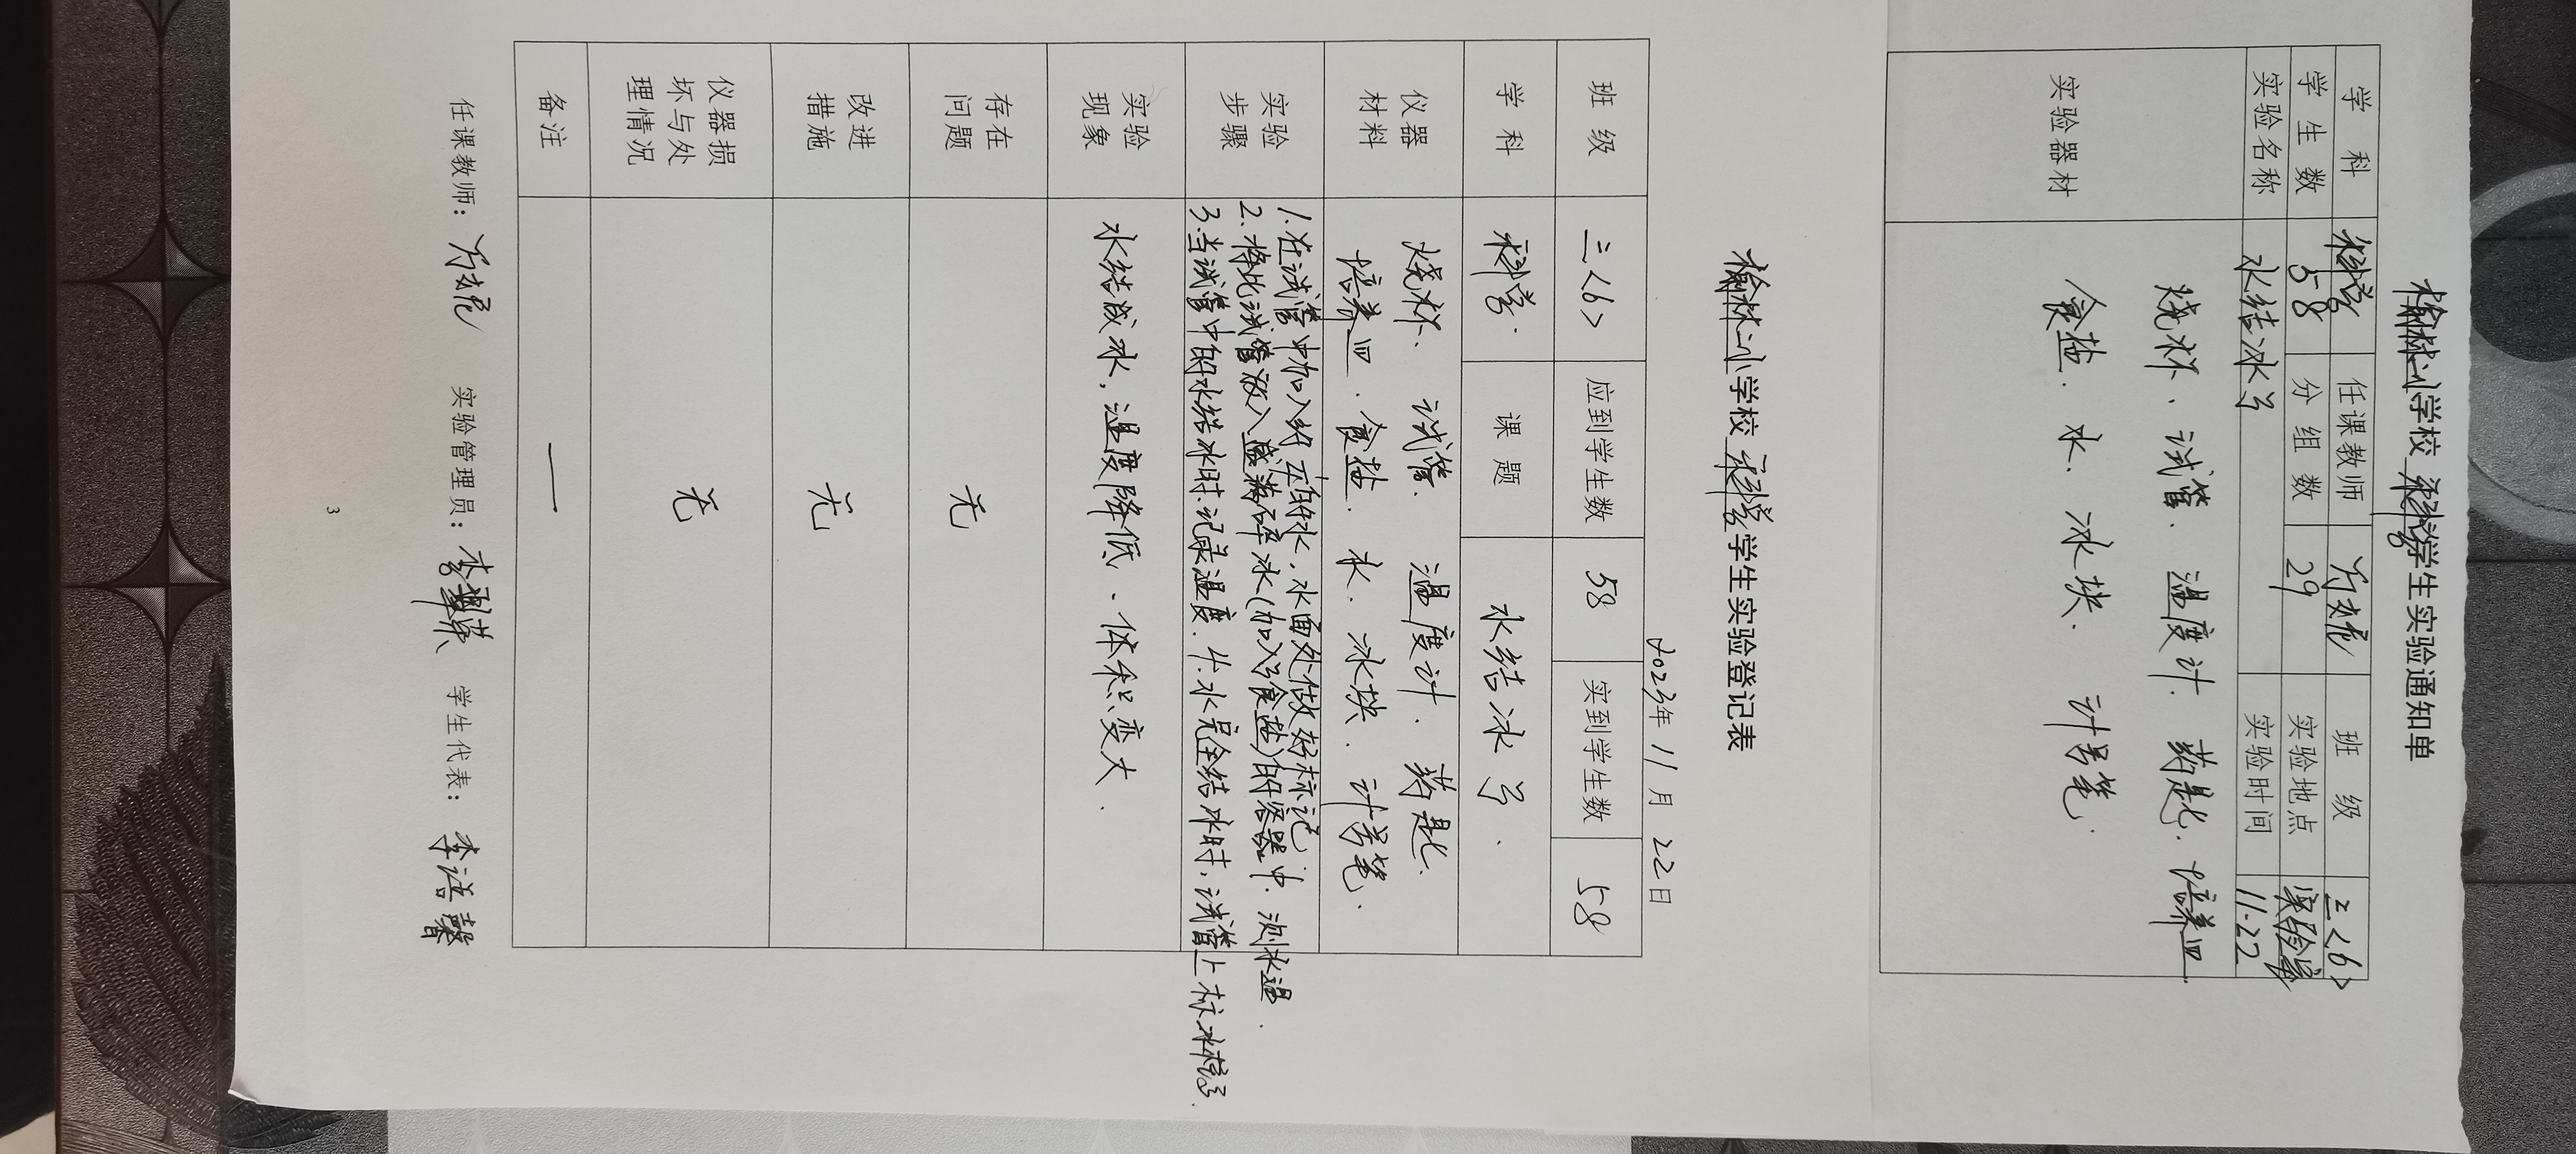 榆林小学校 科学 学生实验通知单
学科 科学 任课教师 班级 三<6>
学生数 58 分组数 29 实验地点 实验室
实验名称 水结冰了 实验时间 11.22
实验器材
烧杯、试管、温度计、药匙、培养皿
食盐、水、冰块、计号笔.
榆林小学校 科学 学生实验登记表
2023年 11月 22日
班级 三<6> 应到学生数 58 实到学生数 58
学科 科学. 课题 水结冰了.
仪器材料
烧杯、试管、温度计、药匙、
培养皿、食盐、水、冰块、计号笔.
实验步骤
1.在试管中加入约 的水,水面处做好标记.
2.将此试管放入盛满碎冰(加入了食盐)的容器中.测水温.
3.当试管中的水结冰时.记录温度.4.水完全结冰时,试管上标
实验现象 水结成冰,温度降低、体积变大.
存在问题 无
改进措施 无
仪器损坏与处理情况 无
备注 —
任课教师: 实验管理员: 李 学生代表: 李洁馨
3